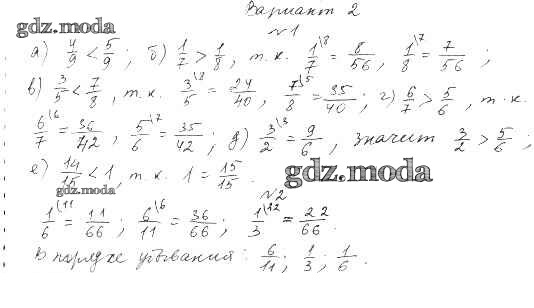 Вариант 2
gdz.moda
№1
а) 4/9 < 5/9 ; б) 1/7 > 1/8 , т.к. 1\8/7 = 8/56 , 1\7/8 = 7/56 ;
в) 3/5 < 7/8 , т.к. 3\8/5 = 24/40 , 7\5/8 = 35/40 ; г) 6/7 > 5/6 , т.к.
6\6/7 = 36/42 , 5\7/6 = 35/42 ; д) 3\3/2 = 9/6 , значит 3/2 > 5/6 ;
е) 14/15 < 1 , т.к. 1 = 15/15 .
gdz.moda
gdz.moda
№2
1\11/6 = 11/66 ; 6\6/11 = 36/66 ; 1\22/3 = 22/66 .
В порядке убывания : 6/11 ; 1/3 ; 1/6 .